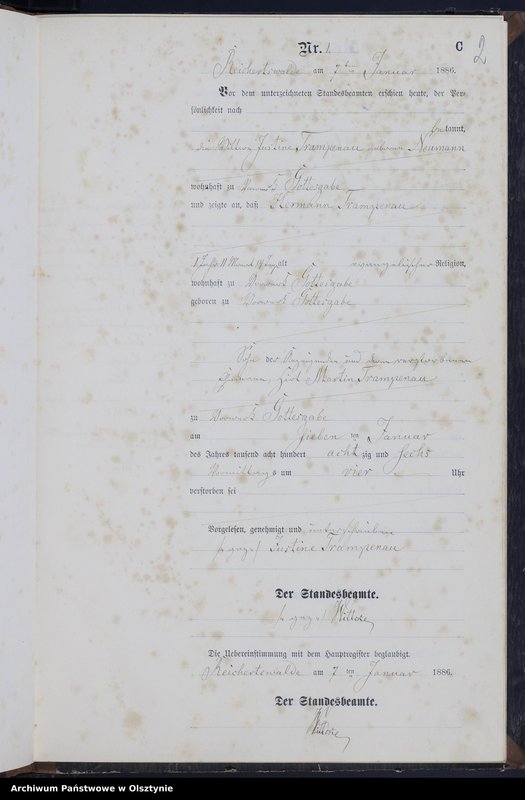 Nr. 1.
C
2
Reichertswalde am 7ten Januar 1886.
Vor dem unterzeichneten Standesbeamten erschien heute, der Per-
sönlichkeit nach
kannt,
die Wittwe Justine Trampenau geborene Neumann
wohnhaft zu Vorwerk Gottesgabe
und zeigte an, daß Hermann Trampenau
1 Jahr 11 Monat Tag alt evangelischer Religion,
wohnhaft zu Vorwerk Gottesgabe
geboren zu Vorwerk Gottesgabe
Sohn der Anzeigenden und dem verstorbenen
Ehemann, Hirt Martin Trampenau
zu Vorwerk Gottesgabe
am sieben ten Januar
des Jahres tausend acht hundert achtzig und sechs
Vormittags um vier Uhr
verstorben sei
Vorgelesen, genehmigt und unterschrieben
/: gez :/ Justine Trampenau
Der Standesbeamte.
/: gez :/
Die Uebereinstimmung mit dem Hauptregister beglaubigt.
Reichertswalde am 7ten Januar 1886.
Der Standesbeamte.
Archiwum Państwowe w Olsztynie